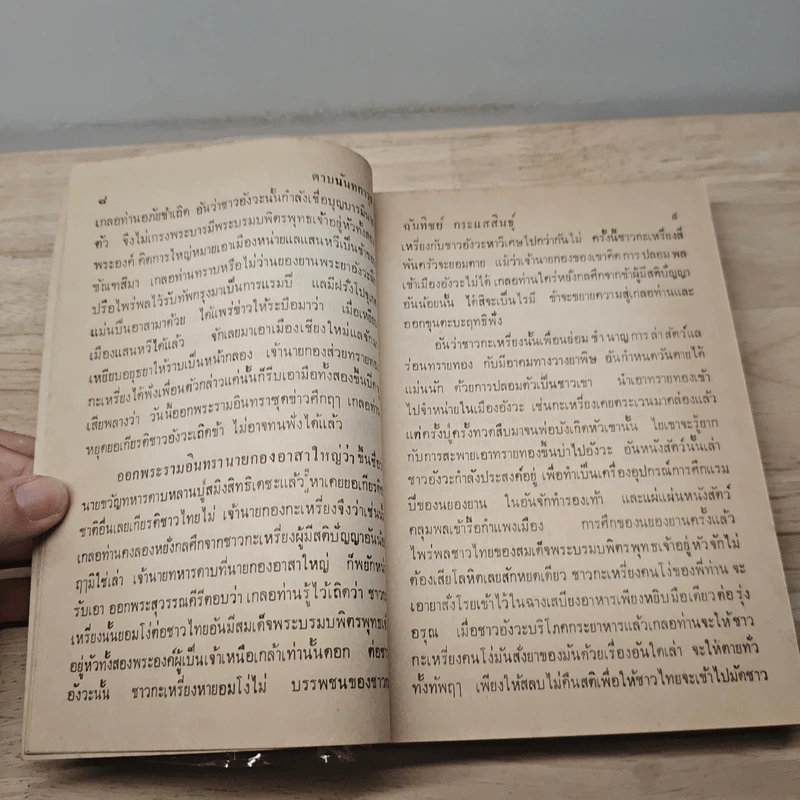 ๘
ดาบนันท
เกลอท่านอภัยข้าเถิด อันว่าชาวอังวะนั้นกำลังเชื่อบุญบารมี
ตัว จึงไม่เกรงพระบารมีพระบรมบพิตรพุทธเจ้าอยู่หัวทั้งสอง
พระองค์ คิดการใหญ่หมายเอาเมืองหน่ายแลแสนหวีเป็น
ขัณฑสีมา เกลอท่านทราบหรือไม่ว่านยองยานพระยาอังวะ
ปรือไพร่พลไว้รับทัพกรุงมาเป็นการแรมปี แลมีฝรั่ง
แม่นปืนอาสามาด้วย ได้แพร่ข่าวให้ระบือมาว่า เมื่อ
เมืองแสนหวีได้แล้ว จักเลยมาเอาเมืองเชียงใหม่แล
เหยียบอยุธยาให้ราบเป็นหน้ากลอง เจ้านายกองส่วยทรายทอง
กะเหรี่ยงได้ฟังเพื่อนตัวกล่าวแค่นั้นก็รีบเอามือทั้งสองขึ้น
เสียพลางว่า วันนี้ออกพระรามอินทราชุดข่าวศึกฤๅ เกลอท่าน
หยุดยอเกียรติชาวอังวะเถิดข้า ไม่อาจทนฟังได้แล้ว
ออกพระรามอินทรานายกองอาสาใหญ่ว่า
นายขวัญทหารดาบหลานปู่สมิงสิทธิเดชะแล้ว หาเคยยอเกียรติ
ชาติอื่นเลยเกียรติชาวไทยไม่ เจ้านายกองกะเหรี่ยงจึงว่า
เกลอท่านคงลองหยั่งกลศึกจากชาวกะเหรี่ยงผู้มีสติปัญญาอัน
ฤๅมิใช่เล่า เจ้านายทหารดาบที่นายกองอาสาใหญ่ ก็พยัก
รับเอา ออกพระสุวรรณคีรีตอบว่า เกลอท่านรู้ไว้เถิดว่า
เหรี่ยงนั้นยอมโง่ต่อชาวไทยอันมีสมเด็จพระบรมบพิตรพุทธ
อยู่หัวทั้งสองพระองค์ผู้เป็นเจ้าเหนือเกล้าเท่านั้นดอก ต่อ
อังวะนั้น ชาวกะเหรี่ยงหายอมโง่ไม่ บรรพชนของชาว
ฉันทิชย์ กระแสสินธุ์
๙
เหรี่ยงกับชาวอังวะหาวิเศษไปกว่ากันไม่ ครั้งนี้ชาวกะเหรี่ยงสี่
พันครัวจะยอมตาย แม้ว่าเจ้านายกองของเขาคิดการปลอมพล
เข้าเมืองอังวะไม่ได้ เกลอท่านใคร่หยั่งกลศึกจากข้าผู้มีสติปัญญา
อันน้อยนั้น ได้สิจะเป็นไรมี ข้าจะขยายความสู่เกลอท่านและ
ออกขุนคะบะฤทธิ์ฟัง
อันว่าชาวกะเหรี่ยงนั้นเพื่อนย่อมชำนาญการล่าสัตว์แล
ร่อนทรายทอง กับมีอาคมทางวางยาพิษ อันกำหนดวันตายได้
แม่นนัก ด้วยการปลอมตัวเป็นชาวเขา นำเอาทรายทองเข้า
ไปจำหน่ายในเมืองอังวะ เช่นกะเหรี่ยงเคยตระเวนมาคล่องแล้ว
แต่ครั้งปู่ครั้งทวดสืบมาจนพ่อบังเกิดหัวเขานั้น ไยเขาจะรู้ยาก
กับการสะพายเอาทรายทองขึ้นบ่าไปอังวะ อันหนังสัตว์นั้นเล่า
ชาวอังวะกำลังประสงค์อยู่ เพื่อทำเป็นเครื่องอุปกรณ์การศึกแรม
ปีของนยองยาน ในอันจักทำรองเท้า และแผ่แผ่นหนังสัตว์
คลุมพลเข้ารื้อกำแพงเมือง การศึกของนยองยานครั้งแล้ว
ไพร่พลชาวไทยของสมเด็จพระบรมบพิตรพุทธเจ้าอยู่หัวจักไม่
ต้องเสียโลหิตเลยสักหยดเดียว ชาวกะเหรี่ยงคนโง่ของพี่ท่าน จะ
เอายาสั่งโรยเข้าไว้ในฉางเสบียงอาหารเพียงหยิบมือเดียวต่อรุ่ง
อรุณ เมื่อชาวอังวะบริโภคกระยาหารแล้วเกลอท่านจะให้ชาว
กะเหรี่ยงคนโง่มันสั่งยาของมันด้วยเรื่องอันใดเล่า จะให้ตายทั่ว
ทั้งทัพฤๅ เพียงให้สลบไม่คืนสติเพื่อให้ชาวไทยจะเข้าไปมัดชาว